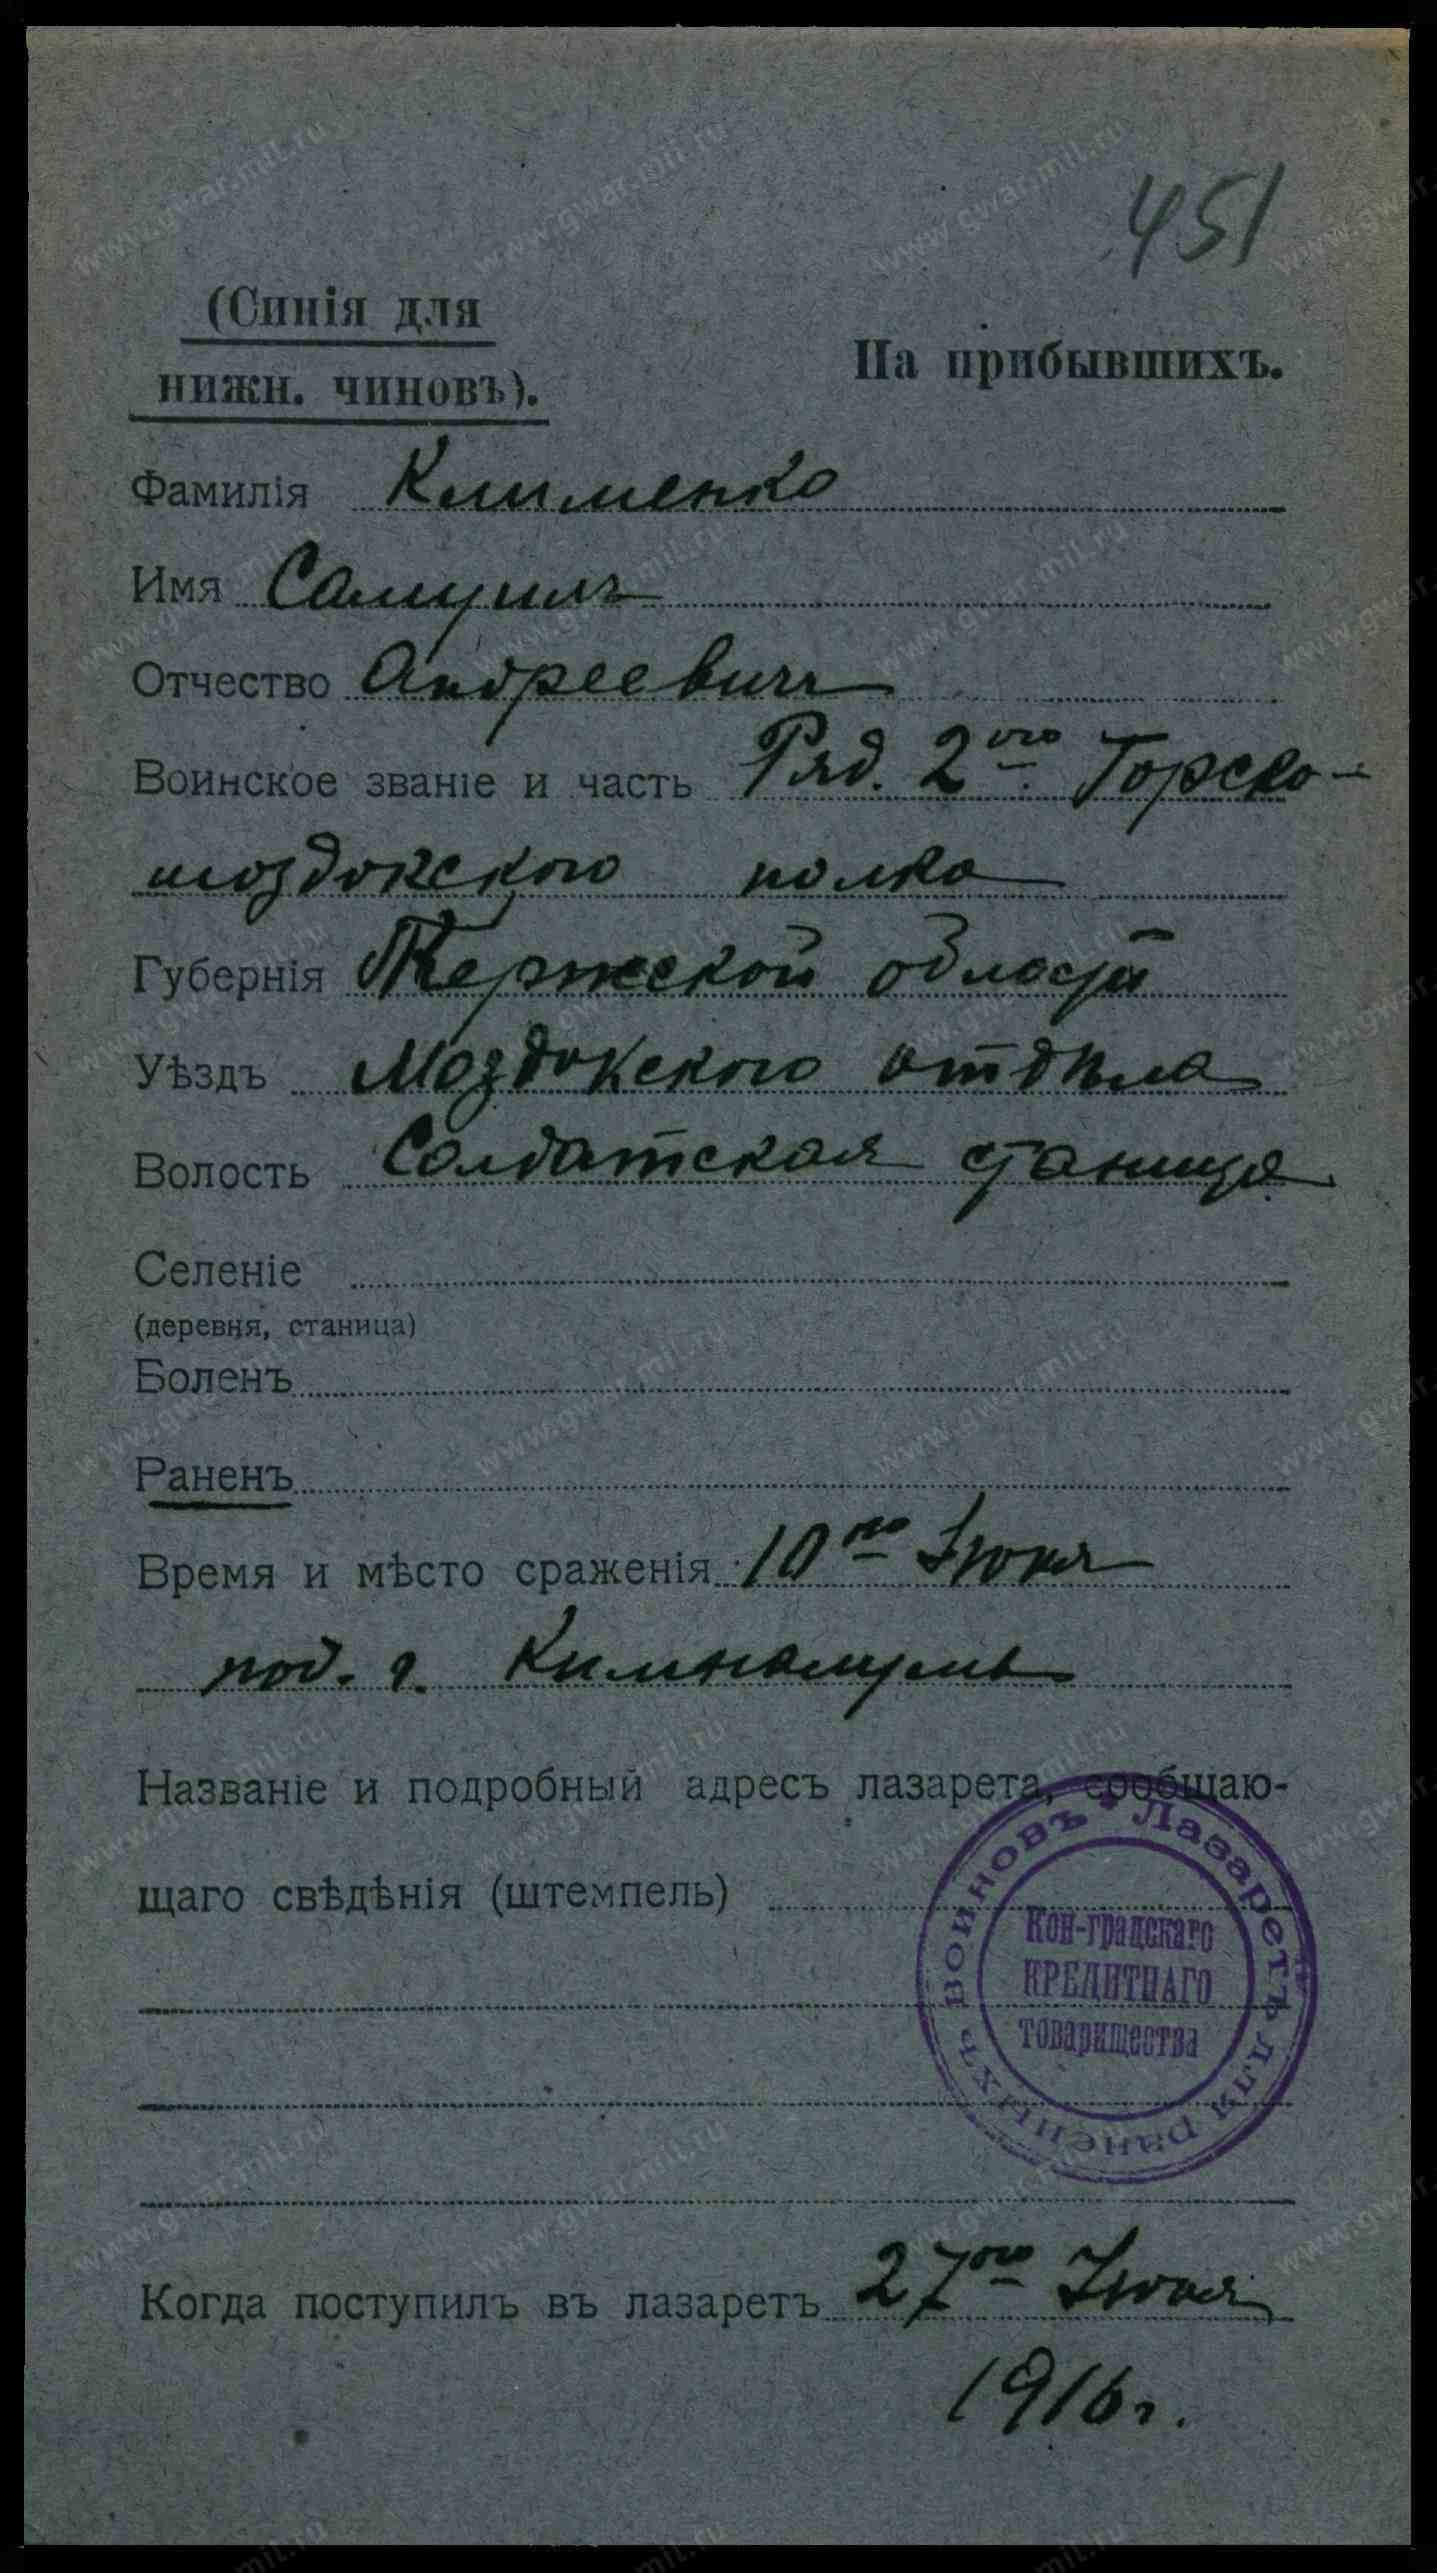 451
(Синія для
нижн. чиновъ).
На прибывшихъ.
Фамилія Клименко
Имя Самуилъ
Отчество Андреевичъ
Воинское званіе и часть Ряд. 2ого Горско-
моздокского полка
Губернія Терской области
Уѣздъ Моздокского отдѣла
Волость Солдатская станица
Селеніе
(деревня, станица)
Боленъ
Раненъ
Время и мѣсто сраженія 10го Іюня
под. г.
Названіе и подробный адресъ лазарета, сообщаю-
щаго свѣдѣнія (штемпель)
Лазаретъ для раненыхъ воиновъ
Кон-градскаго
КРЕДИТНАГО
товарищества
Когда поступилъ въ лазаретъ 27ого Іюня
1916 г.
www.gwar.mil.ru